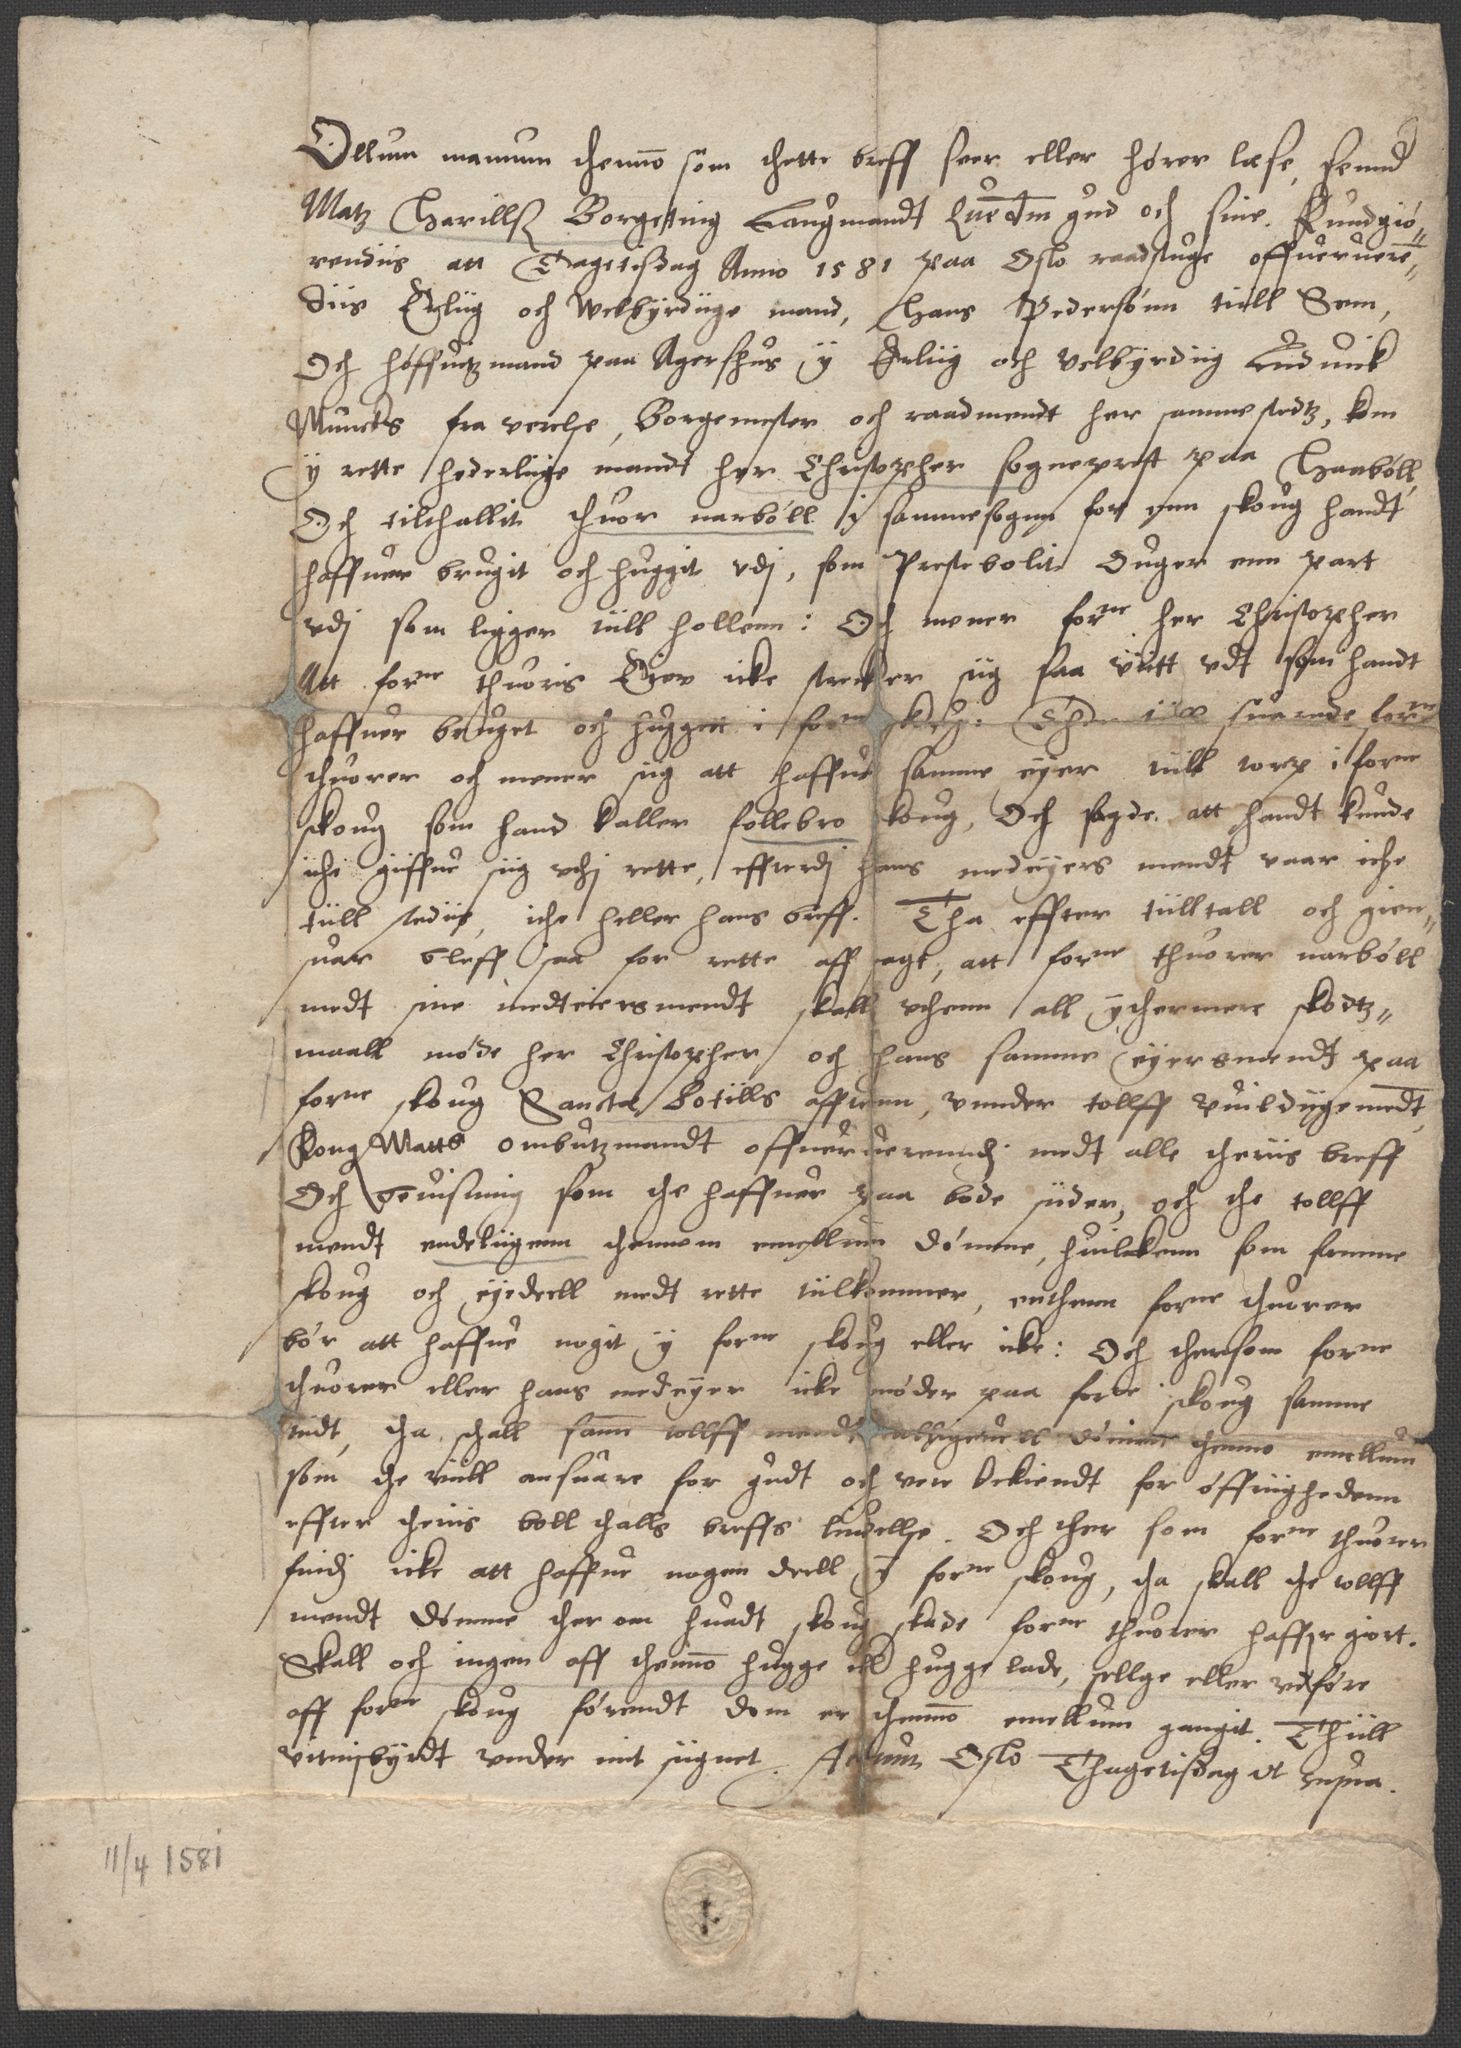 Ollum mannum themmo som thette breff seer eller hörer læse, sennd
Matz Harillß Borgeting Laugmandt Quedtm gud och sine. Kundgiö„
rendiis att Tagetisdag Anno 1581 paa Oslo raadstuge offueruere„
diis Erliig och Welbÿrdiige mand, Hans Pedersönn tiill Sem,
Och höffuitzmand paa Agershus ÿ Erliig och velbÿrdiig Luduick
Muncks fra verelse, Borgemester och raadmendt her sammestedtz, kom
ÿ rette hederliige mandt her Christopher sogneprest paa Haaböll,
Och tilthallit thuor narböll i samme sogen for enn skoug handt
haffuer brugit och huggit vdj, som Prestebolit Ouger enn part
vdj som ligger tiill hollenn: Och mener forne her Christopher
Att forne thuoris Eier icke strecker siig saa viitt vdt som handt
haffuer bruget och huggett i forne skoug. Ther till suarede forne
thuorer och mener siig att haffue samme eÿer tiill torp i forne
skoug som hand kaller follebro skoug, Och sagde att handt kunde
iche giffue siig vdj rette, effterdj hans medeÿers mendt vaar iche
tiill stediis, iche heller hans breff. Tha effter tiilltall och gien„
suar bleff saa for rette aff sagt, att forne thuorer narböll
medt sine medteiersmendt skall vthenn all ÿthermere skodtz„
maall möde her Christopher och hans samme eÿersmendt paa
forne skoug Sancte Botiills afftenn, vnnder tollff vuildÿge medt,
Kong Matts ombutzmandt offueruerenndj medt alle theriis breff
Och beuisning som the haffuer paa bode siider, och the tollff
mendt endeliigenn thennem emellum dömme, huilckenn som samme
skoug och eÿedeell medt rette tiilkommer, enthenn forne thuorer
bör att haffue nogit ÿ forne skoug eller icke: Och thersom forne
thuorer eller hans medeÿer icke möder paa forne skoug samme
tiidt, tha schall samme tollff mendt alligeuell dömme themmo emellum
som the viill ansuare for gudt och vere bekiendt for öffriighedenn
effter theriis boll thalls breffs liudellse. Och ther som forne thuorer
finds icke att haffue nogen deell i forne skoug, tha skall the tollff
mendt dömme ther om huadt skoug skade forne thuorer haffuer giort.
Skall och ingen aff themmo hugge ell hugge lade, sellge eller vdföre
aff forne skoug förendt dom er themmo emellum gangit. Thiill
vitnisbÿrdt vnder mit siignet. Actum Oslo Thagetisdag vt supra.
11/4 1581